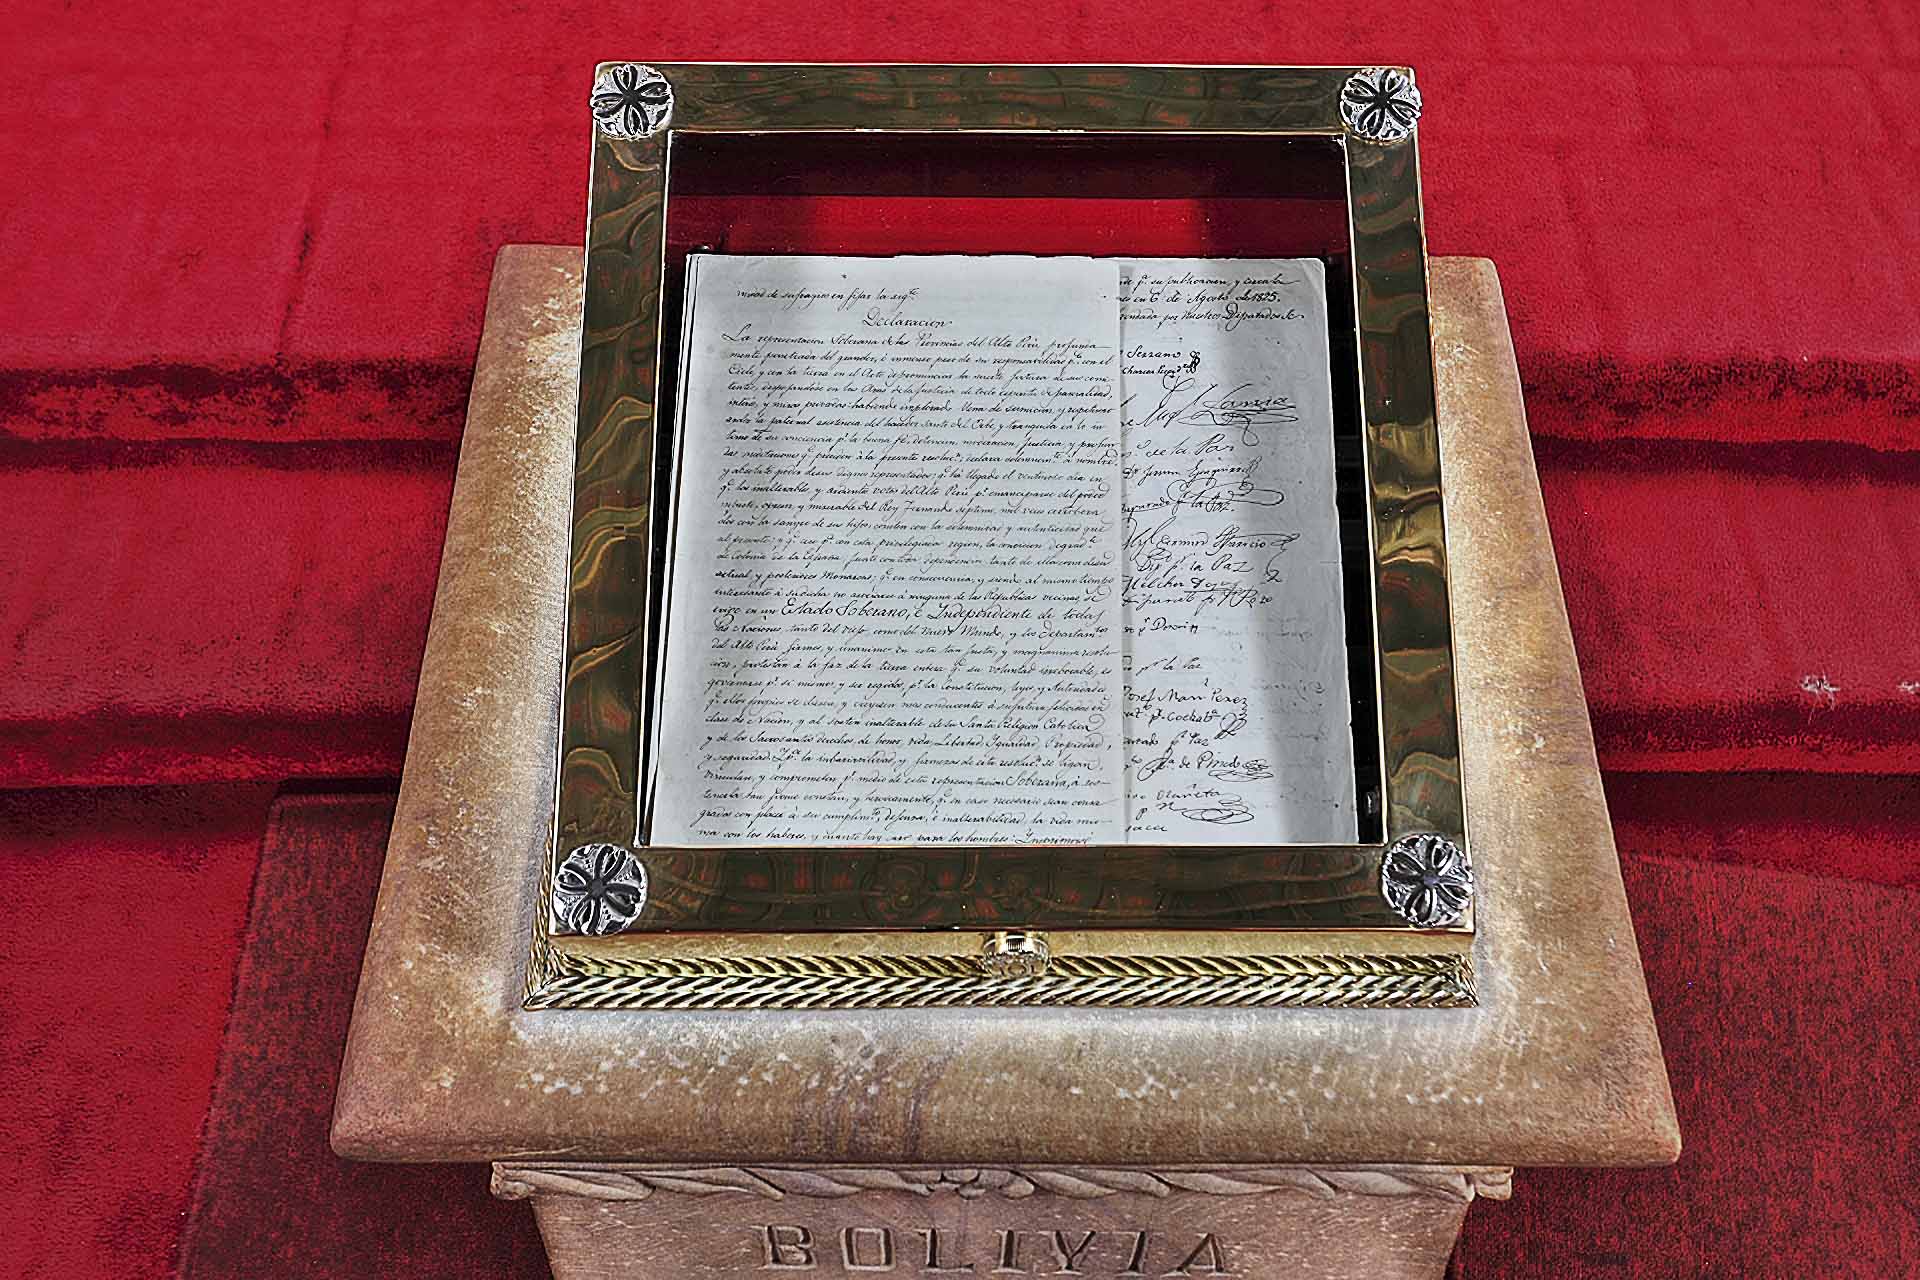 nidad de sufragios en fijar la sigte
Declaracion
La representacion Soberana de las Provincias del Alto Perú profunda-
mente penetrada del grandor, é inmenso peso de su responsavilidad pa. con el
Cielo, y con la tierra en el Acto de pronunciar la suerte futura de sus comi-
tentes, despojandose en las Aras de la Justicia de todo espiritu de parcialidad,
interes, y miras privadas: habiendo implorado llena de sumicion, y respetuoso
ardor la paternal asistencia del hacedor Santo del Orbe, y tranquila en lo in-
timo de su conciencia pr. la buena fé, detencion, moderacion, Justicia, y profun-
das meditaciones qe. presiden á la presente resolucn. declara solemnemte. á nombre,
y absoluto poder de sus dignos representados: qe. há llegado el venturoso dia en
qe. los inalterables, y ardientes votos del Alto Perú pr. emanciparse del poder
injusto, opresor, y miserable del Rey Fernando septimo, mil veces corrobora-
dos con la sangre de sus hijos, consten con la solemnidad y autenticidad que
al presente; y qe. cese pa. con esta privilegiada region, la condicion degradte.
de Colonia de la España, junto con toda dependencia, tanto de ella, como de su
actual, y posteriores Monarcas: qe. en consecuencia, y siendo al mismo tiempo
interesante á su dicha no asociarse á ninguna de las Republicas vecinas, se
erije en un Estado Soberano, é Independiente de todas
las Naciones, tanto del viejo, como del nuevo Mundo, y los Departamtos
del Alto Perú firmes, y unanimes en esta tan justa, y magnanima resolu-
cion, protestan á la faz de la tierra entera qe. su voluntad irrebocable, es
governarse pr. si mismos, y ser regidos, pr. la Constitucion, leyes, y Autoridades
qe. ellos propios se diesen, y creyesen mas conducentes á su futura felicidad en
clase de Nacion, y al sosten inalterable de su Santa Religion Catolica,
y de los Sacrosantos derechos de honor, vida, Libertad, Igualdad, Propiedad,
y seguridad. Y pa. la imbariavilidad, y firmeza de esta resolucn. se ligan,
vinculan, y comprometen pr. medio de esta representacion Soberana, á sos-
tenerla tan firme, constan, y heroicamente, qe. en caso necesario sean consa-
grados con placer á su cumplimto, defensa, é inalterabilidad, la vida mis-
ma con los haberes, y cuanto hay caro para los hombres: Imprimase
pa. su publicacion, y circula
en 6 de Agosto de 1825.
por nuestros Diputados Se
Serrano
Charcas
de la Paz
Diputado pr. la Paz.
Dip. pr. la Paz
Melchor
pr. la Paz
Josef Mari Perez
pr. Cochaba
pr. Paz
de Pinedo
Olañeta
BOLIVIA